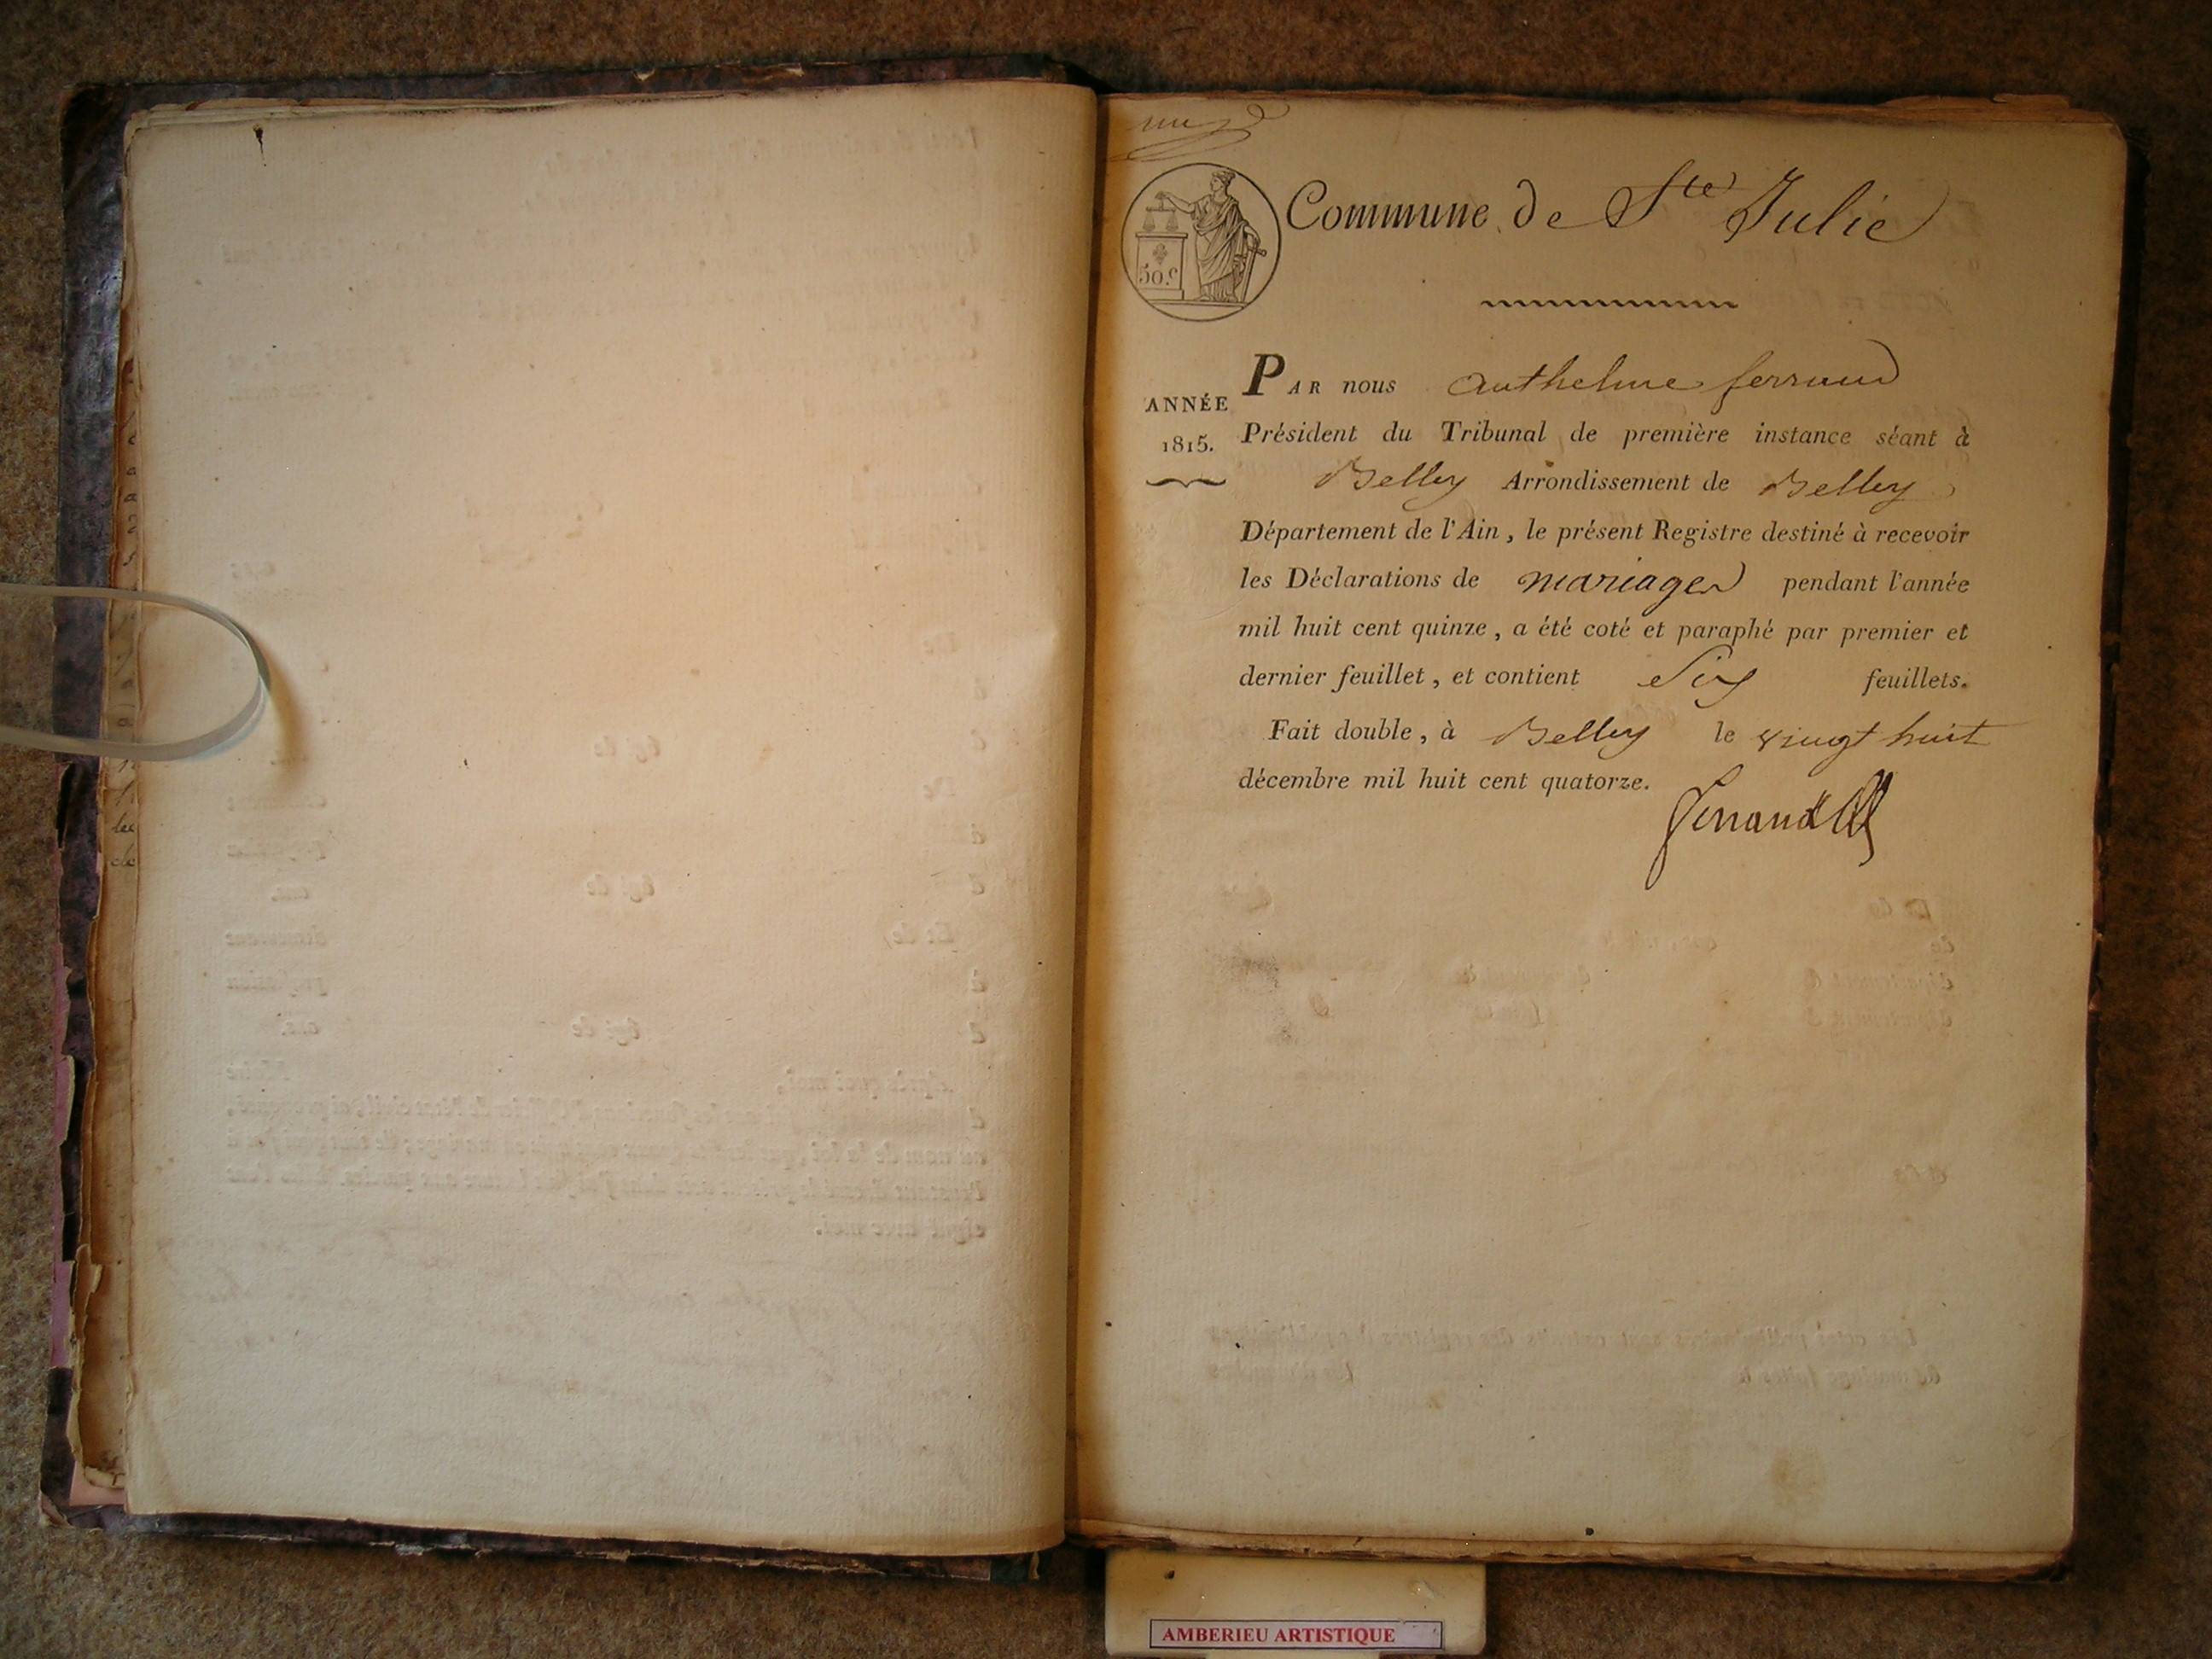 Commune de Ste Julie
50.c
PAR nous anthelme ferrand
ANNÉE
1815.
Président du Tribunal de première instance séant à
Belley Arrondissement de Belley
Département de l'Ain, le présent Registre destiné à recevoir
les Déclarations de mariages pendant l'année
mil huit cent quinze, a été coté et paraphé par premier et
dernier feuillet, et contient Six feuillets.
Fait double, à Belley le vingt huit
décembre mil huit cent quatorze.
ferrand
AMBERIEU ARTISTIQUE